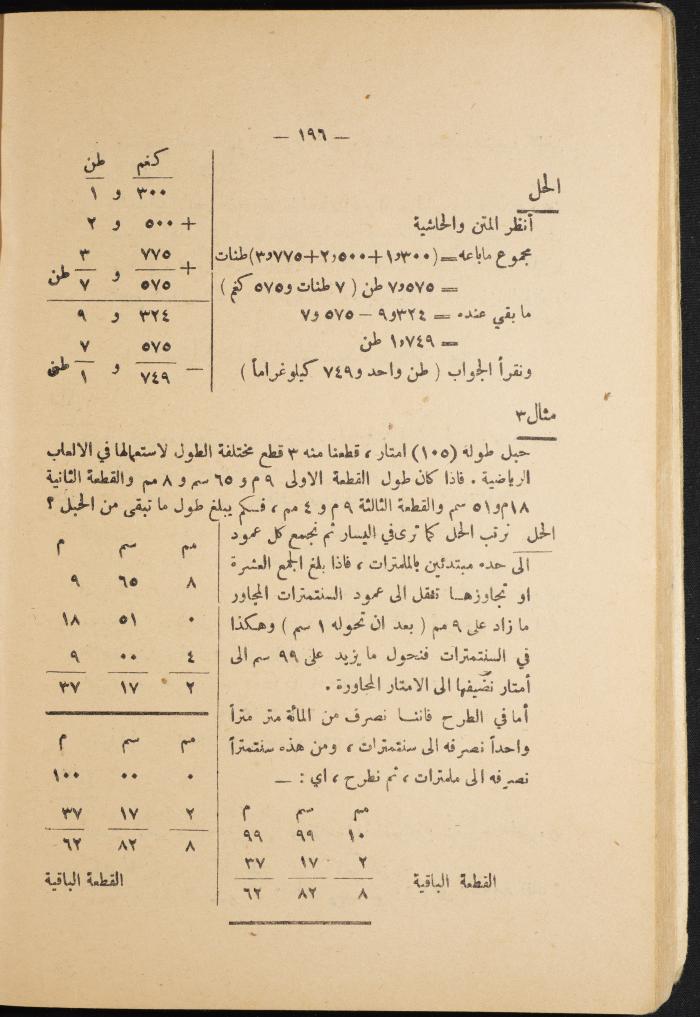 — ١٩٦ —
الحل
أنظر المتن والحاشية
مجموع ماباعه = (٣٠٠و١+٥٠٠و٢+٧٧٥و٣) طنات
= ٥٧٥و٧ طن ( ٧ طنات و٥٧٥ كغم )
ما بقي عنده = ٣٢٤و٩ − ٥٧٥ و٧
= ٧٤٩و١ طن
ونقرأ الجواب ( طن واحد و٧٤٩ كيلوغراماً )
كغم طن
٣٠٠ و ١
+ ٥٠٠ و ٢
+ ٧٧٥ و ٣
٥٧٥ و ٧ طن
٣٢٤ و ٩
− ٥٧٥ و ٧
٧٤٩ و ١ طن
مثال٣
حبل طوله (١٠٥) امتار ، قطعنا منه ٣ قطع مختلفة الطول لاستعمالها في الالعاب
الرياضية . فاذا كان طول القطعة الاولى ٩ م و ٦٥ سم و ٨ مم والقطعة الثانية
١٨م و٥١ سم والقطعة الثالثة ٩ م و ٤ مم ، فكم يبلغ طول ما تبقى من الحبل ؟
الحل نرتب الحل كما ترى في اليسار ثم نجمع كل عمود
الى حده مبتدئين بالملمترات ، فاذا بلغ الجمع العشرة
او تجاوزها تنقل الى عمود السنتمترات المجاور
ما زاد على ٩ مم ( بعد ان تحوله ١ سم ) وهكذا
في السنتمترات فنحول ما يزيد على ٩٩ سم الى
أمتار نضيفها الى الامتار المجاورة .
أما في الطرح فاننا نصرف من المائة متر متراً
واحداً نصرفه الى سنتمترات ، ومن هذه سنتمتراً
نصرفه الى ملمترات ، ثم نطرح ، اي : —
مم سم م
١٠ ٩٩ ٩٩
٢ ١٧ ٣٧
٨ ٨٢ ٦٢
القطعة الباقية
مم سم م
٨ ٦٥ ٩
٠ ٥١ ١٨
٤ ٠٠ ٩
٢ ١٧ ٣٧
مم سم م
٠ ٠٠ ١٠٠
٢ ١٧ ٣٧
٨ ٨٢ ٦٢
القطعة الباقية